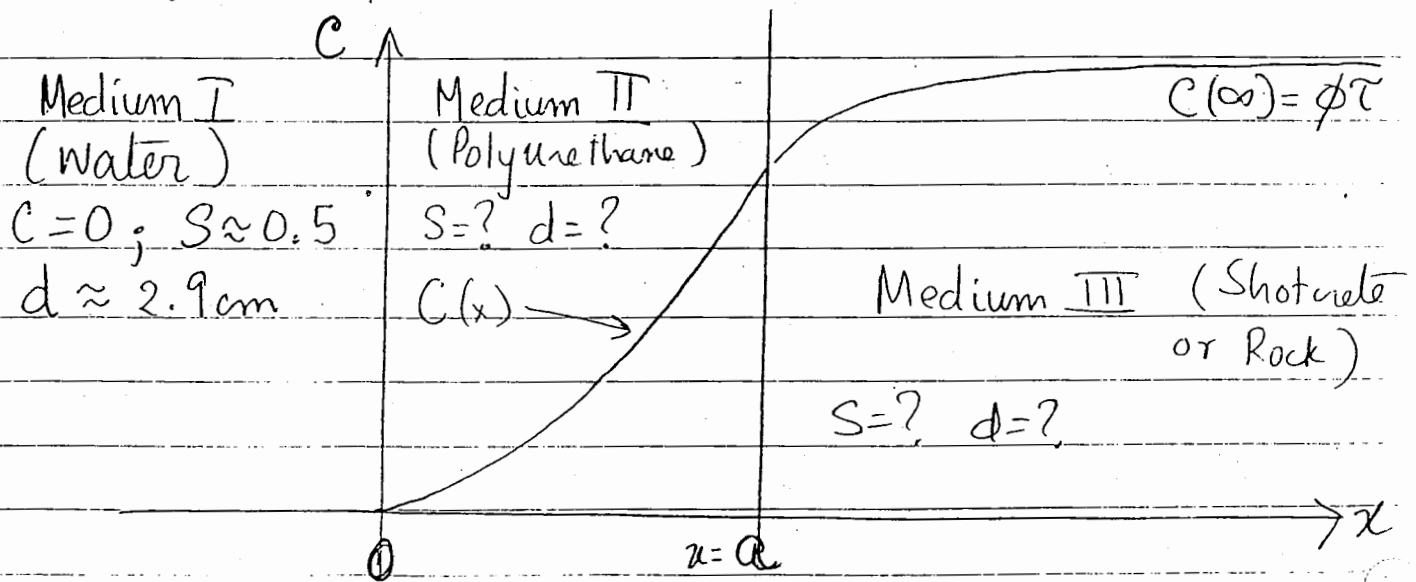 C
Medium I
(Water)
C=0; S≈0.5
d≈2.9cm
Medium II
(Polyurethane)
S=? d=?
C(x)
C(∞)=φτ
Medium III (Shotcrete
or Rock)
S=? d=?
0
x=a
x